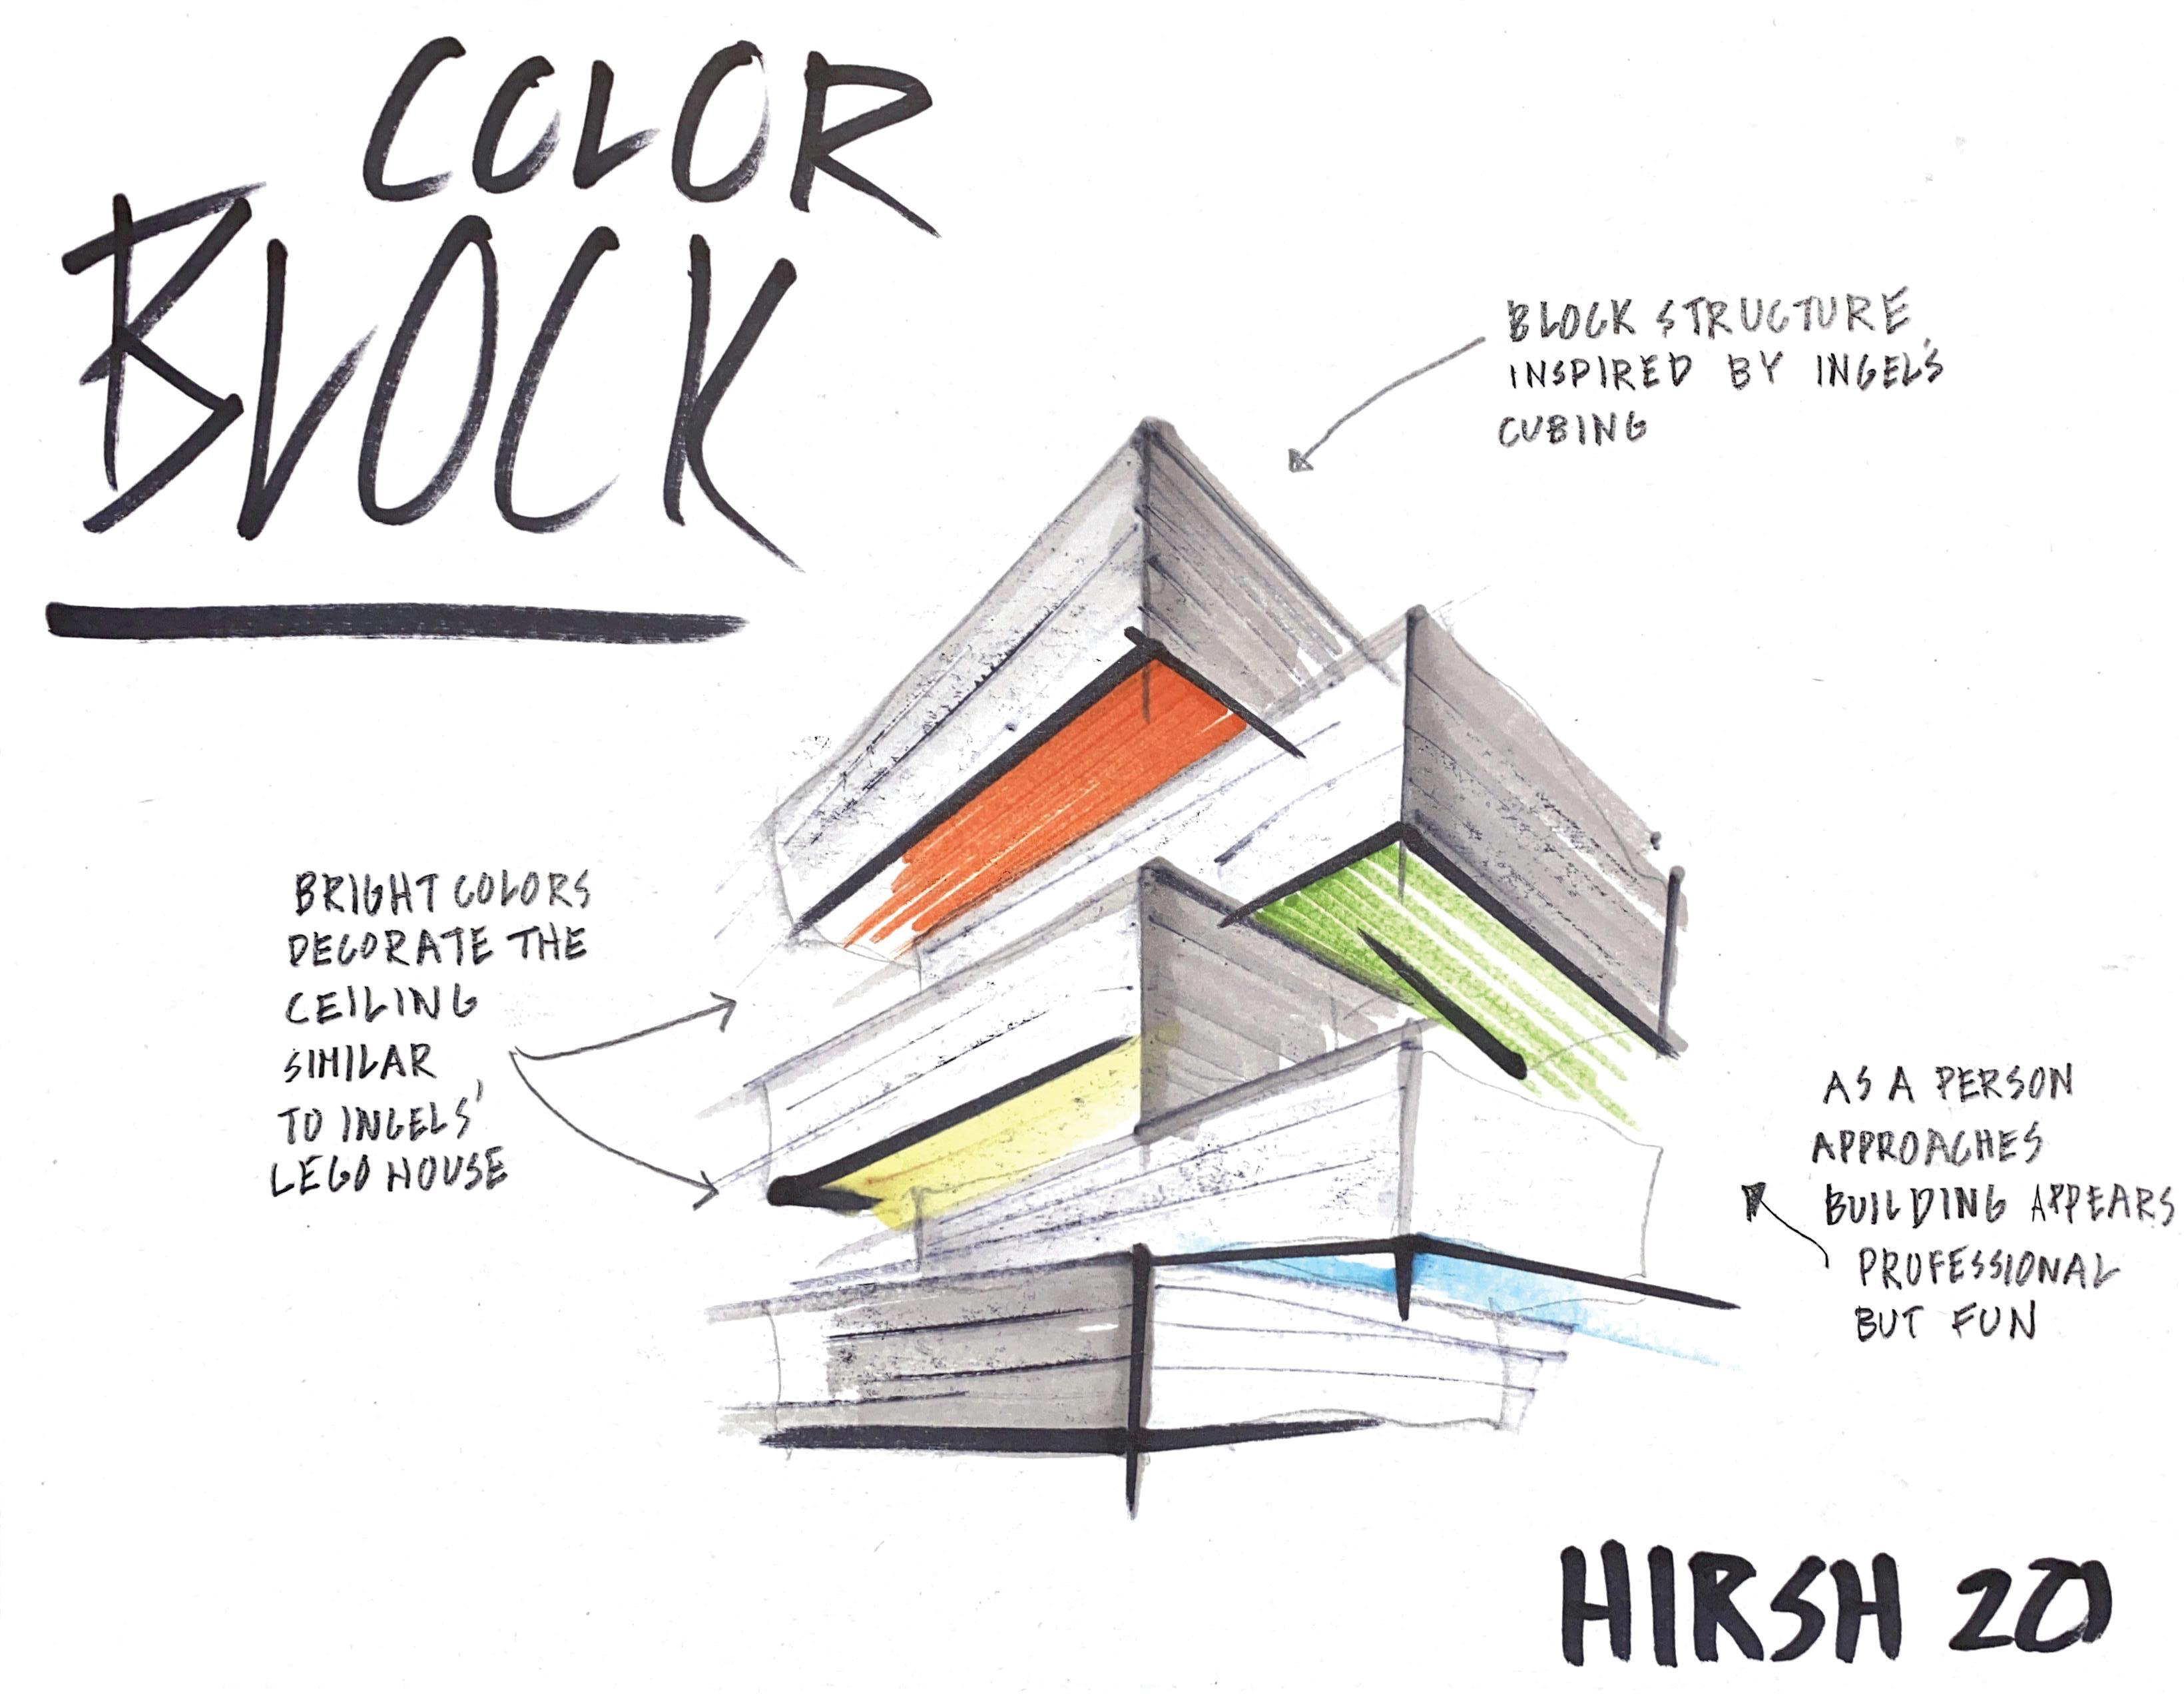 COLOR
BLOCK
BLOCK STRUCTURE
INSPIRED BY INGEL'S
CUBING
BRIGHT COLORS
DECORATE THE
CEILING
SIMILAR
TO INGELS'
LEGO HOUSE
AS A PERSON
APPROACHES
BUILDING APPEARS
PROFESSIONAL
BUT FUN
HIRSH 20